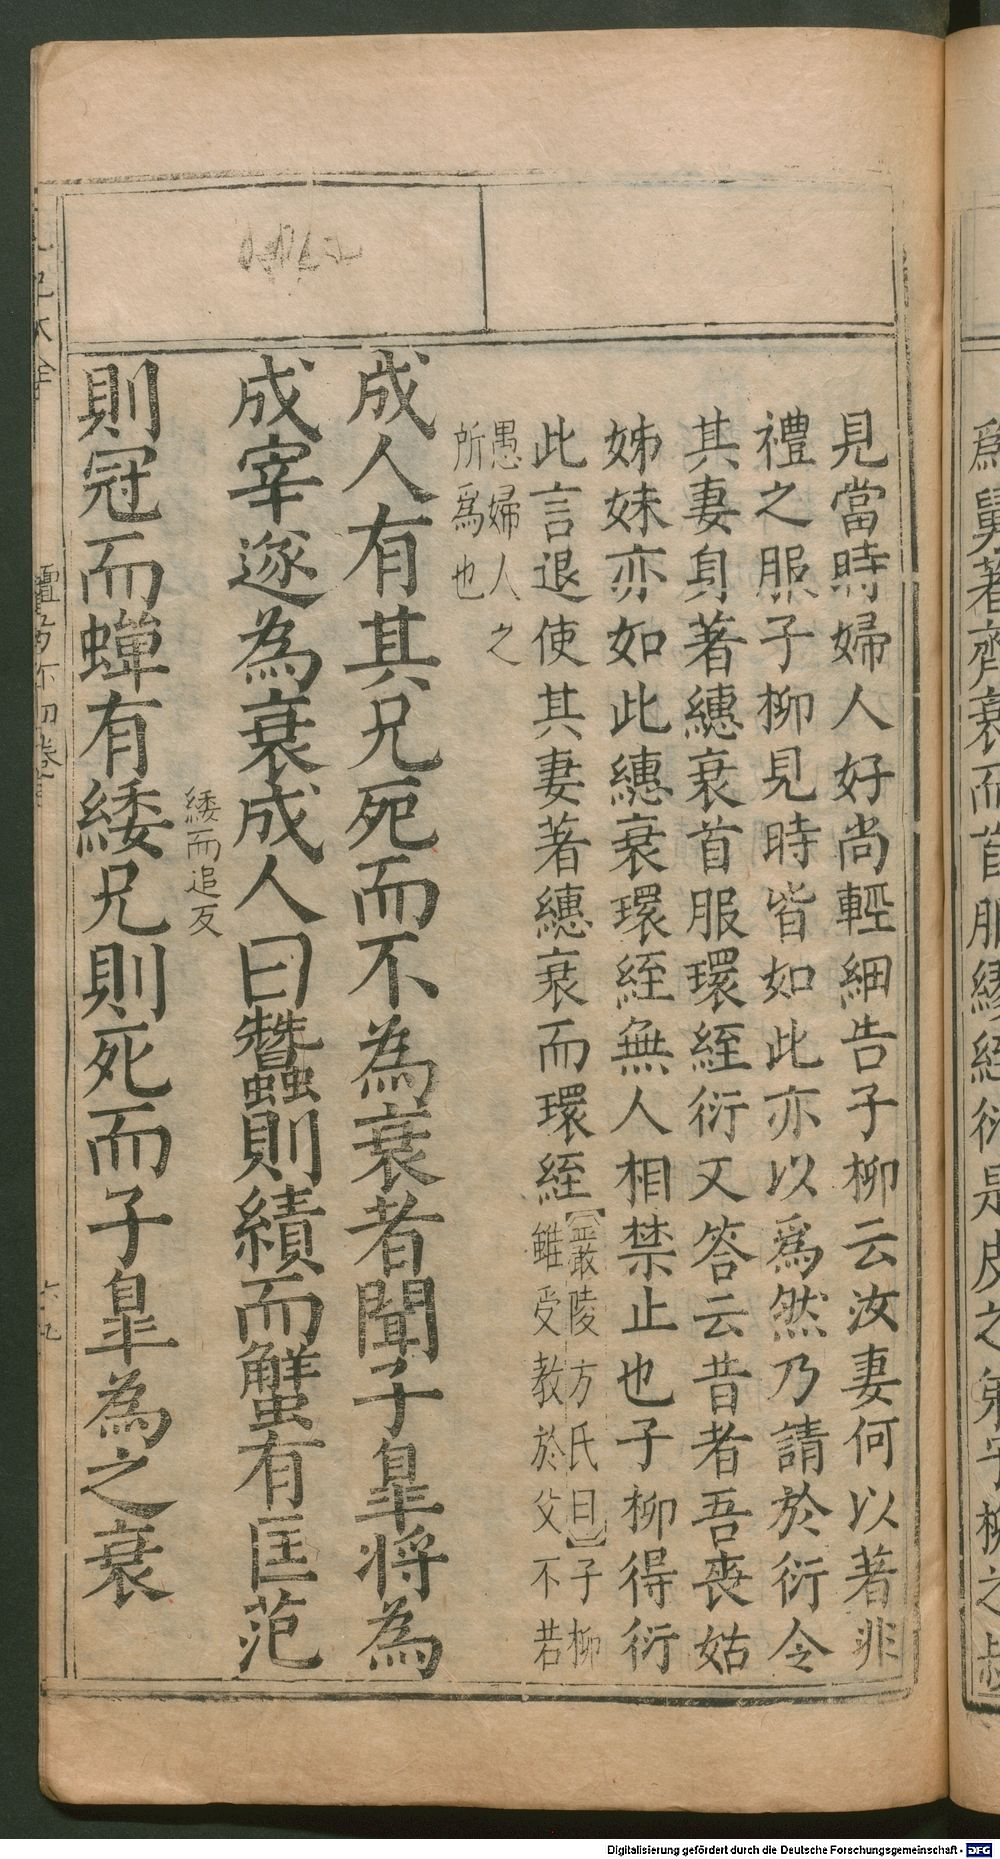 見當時婦人好尚輕細告子柳云汝妻何以著非
禮之服子柳見時皆如此亦以爲然乃請於衍令
其妻身著繐衰首服環絰衍又答云昔者吾喪姑
姊妹亦如此繐衰環絰無人相禁止也子柳得衍
此言退使其妻著繐衰而環絰【嚴陵方氏曰】子柳
雖受教於父不若
愚婦人之
所爲也
成人有其兄死而不為衰者聞子皐將為
成宰遂為衰成人曰蠶則績而蟹有匡范
緌而追反
則冠而蟬有緌兄則死而子皐為之衰
爲舅著齊衰而首服繆絰衍是皮之弟子柳之叔
Digitalisierung gefördert durch die Deutsche Forschungsgemeinschaft - DFG